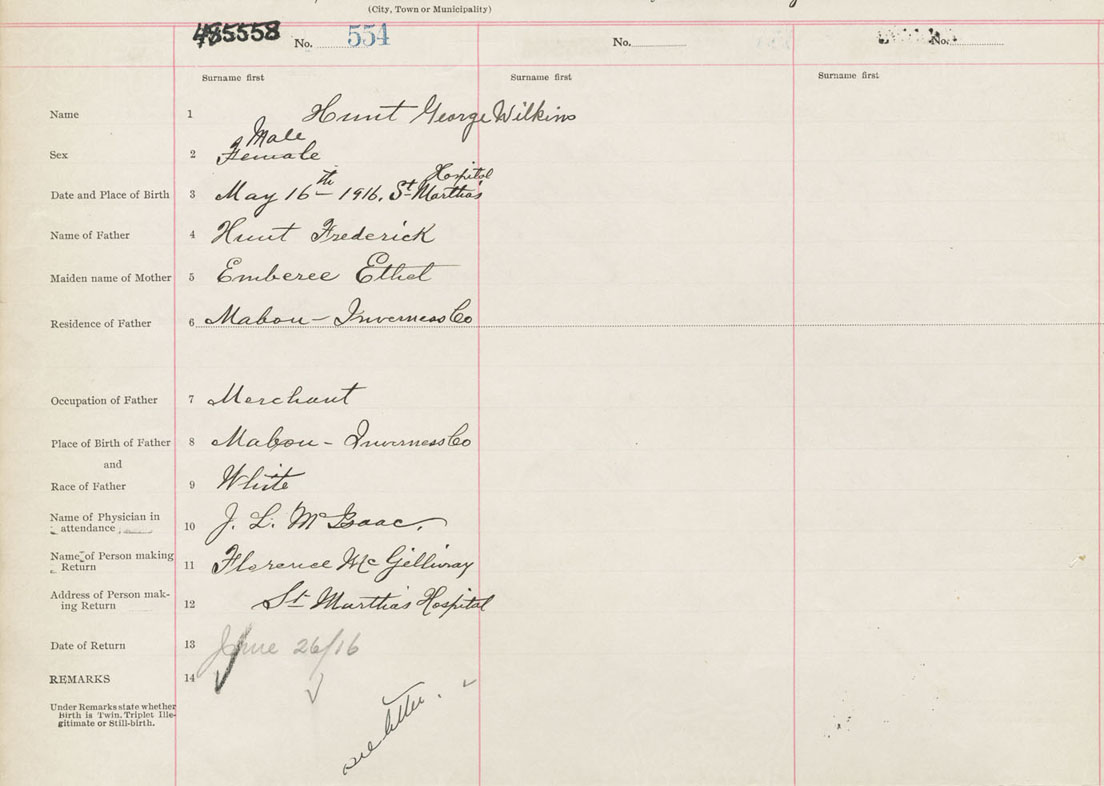 (City, Town or Municipality)
485558 No. 554 No. No.
Surname first Surname first Surname first
Name 1 Hunt George Wilkins
Male
Sex 2 Female
Hospital
Date and Place of Birth 3 May 16th 1916. St Martha's
Name of Father 4 Hunt Frederick
Maiden name of Mother 5 Emberee Ethel
Residence of Father 6 Mabou - Inverness Co
Occupation of Father 7 Merchant
Place of Birth of Father 8 Mabou - Inverness Co
and
Race of Father 9 White
Name of Physician in
attendance 10 J. L. McIsaac.
Name of Person making
Return 11 Florence McGillivray
Address of Person mak-
ing Return 12 St Martha's Hospital
Date of Return 13 June 26/16
REMARKS 14
Under Remarks state whether
Birth is Twin, Triplet Ille-
gitimate or Still-birth.
see letter.